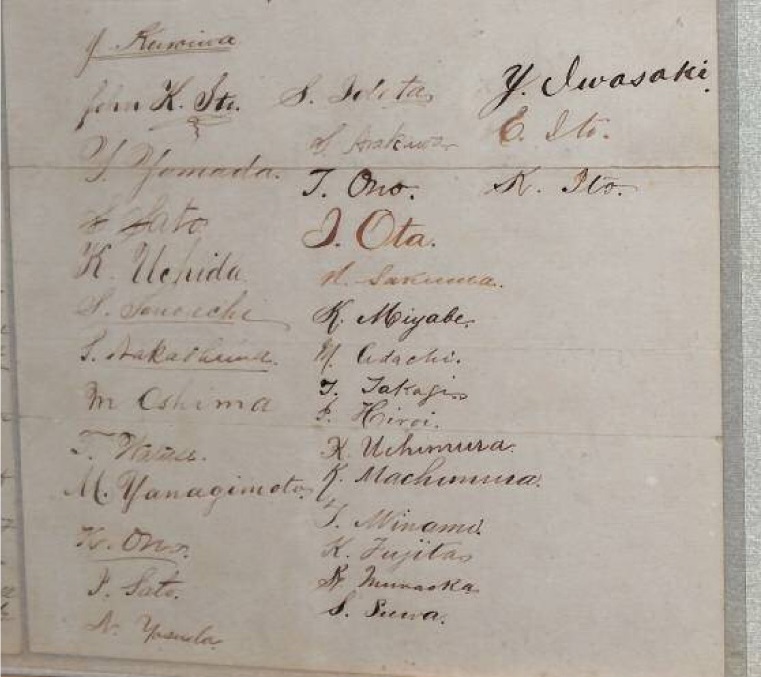 John K. Ito.
Y. Yamada.
S. Sato.
K. Uchida
M Oshima
T. Watase.
M. Yanagimoto.
K. Ono.
S. Sato.
N. Yasuda.
S.
S. Arakawa
T. Ono.
J. Ota.
N. Sakuma.
K. Miyabe.
M. Adachi.
T. Takagi.
I. Hiroi.
K. Uchimura.
K. Machimura.
T. Minami.
K. Fujita.
K. Muraoka
S. Suwa.
Y. Iwasaki.
E. Ito.
K. Ito.